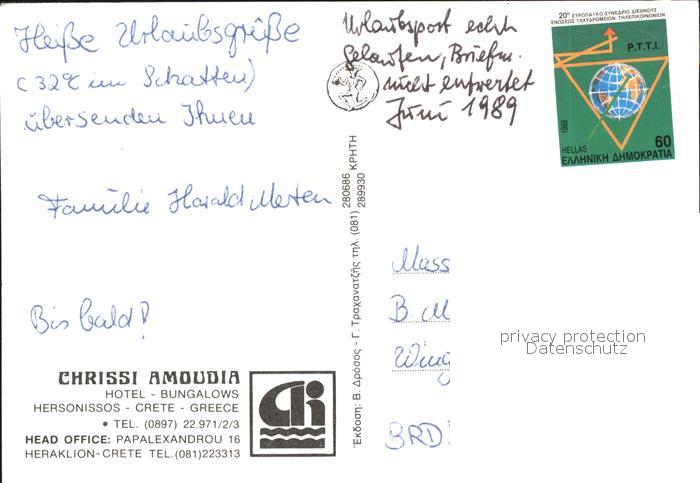 Heiße Urlaubsgrüße
(32°C im Schatten)
übersenden Ihnen
Familie Harald Merten
Bis bald!
CHRISSI AMOUDIA
HOTEL - BUNGALOWS
HERSONISSOS - CRETE - GREECE
• TEL. (0897) 22.971/2/3
HEAD OFFICE: PAPALEXANDROU 16
HERAKLION-CRETE TEL.(081)223313
Urlaubspost echt
gelaufen, Briefm.
nicht entwertet
Juni 1989
Έκδοση: Β. Δρόσος - Γ. Τραχανατζής τηλ. (081) 280686 289930 ΚΡΗΤΗ
20º ΕΥΡΩΠΑΪΚΟ ΣΥΝΕΔΡΙΟ ΔΙΕΘΝΟΥΣ
ΕΝΩΣΕΩΣ ΤΑΧΥΔΡΟΜΕΙΩΝ-ΤΗΛΕΠΙΚΟΙΝΩΝΙΩΝ
P.T.T.I.
1988
HELLAS
60
ΕΛΛΗΝΙΚΗ ΔΗΜΟΚΡΑΤΙΑ
Mass
B. M
Wing
BRD
privacy protection
Datenschutz